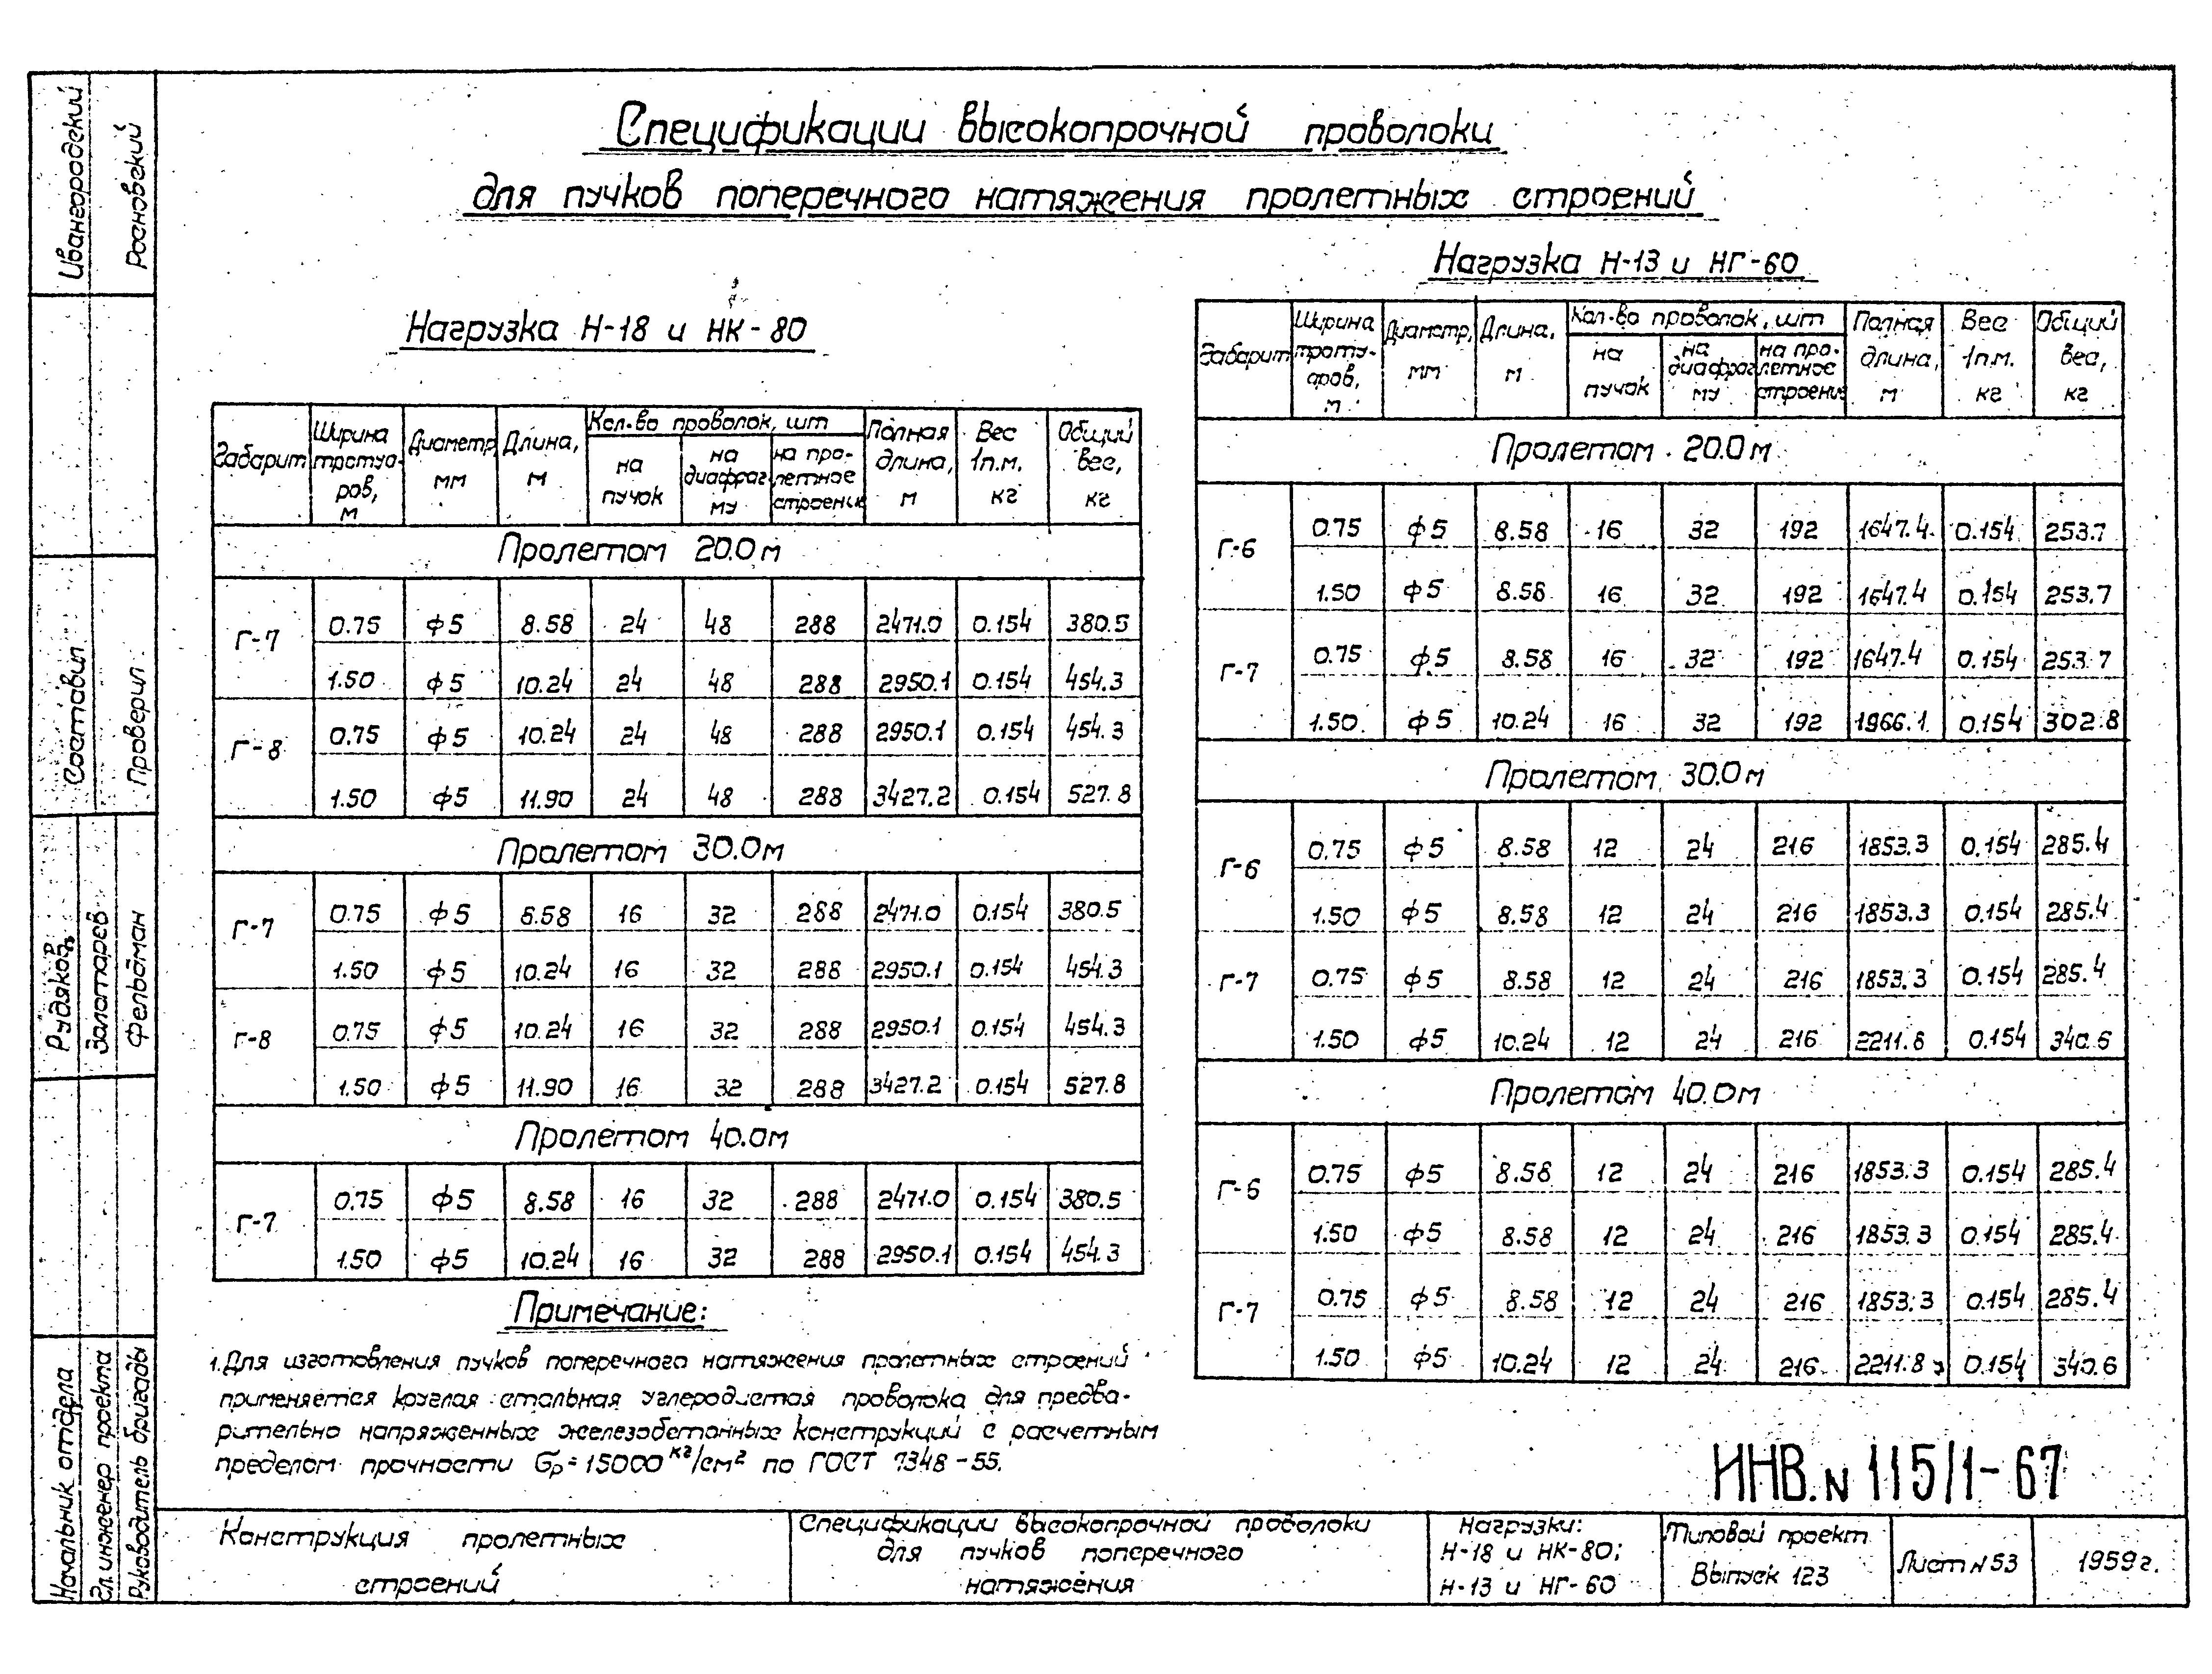 Спецификации высокопрочной проволоки
для пучков поперечного натяжения пролетных строений
Нагрузка Н-18 и НК-80
Габарит | Ширина тротуаров, м | Диаметр, мм | Длина, м | Кол-во проволок, шт | Полная длина, м | Вес 1п.м. кг | Общий вес, кг
на пучок | на диафрагму | на пролетное строение
Пролетом 20.0м
Г-7 0.75 ф5 8.58 24 48 288 2471.0 0.154 380.5
1.50 ф5 10.24 24 48 288 2950.1 0.154 454.3
Г-8 0.75 ф5 10.24 24 48 288 2950.1 0.154 454.3
1.50 ф5 11.90 24 48 288 3427.2 0.154 527.8
Пролетом 30.0м
Г-7 0.75 ф5 8.58 16 32 288 2471.0 0.154 380.5
1.50 ф5 10.24 16 32 288 2950.1 0.154 454.3
Г-8 0.75 ф5 10.24 16 32 288 2950.1 0.154 454.3
1.50 ф5 11.90 16 32 288 3427.2 0.154 527.8
Пролетом 40.0м
Г-7 0.75 ф5 8.58 16 32 288 2471.0 0.154 380.5
1.50 ф5 10.24 16 32 288 2950.1 0.154 454.3
Примечание:
1. Для изготовления пучков поперечного натяжения пролетных строений
применяется круглая стальная углеродистая проволока для предва-
рительно напряженных железобетонных конструкций с расчетным
пределом прочности бр=15000 кг/см² по ГОСТ 7348-55.
Нагрузка Н-13 и НГ-60
Габарит | Ширина тротуаров, м | Диаметр, мм | Длина, м | Кол-во проволок, шт | Полная длина, м | Вес 1п.м. кг | Общий вес, кг
на пучок | на диафрагму | на пролетное строение
Пролетом 20.0м
Г-6 0.75 ф5 8.58 16 32 192 1647.4 0.154 253.7
1.50 ф5 8.58 16 32 192 1647.4 0.154 253.7
Г-7 0.75 ф5 8.58 16 32 192 1647.4 0.154 253.7
1.50 ф5 10.24 16 32 192 1966.1 0.154 302.8
Пролетом 30.0м
Г-6 0.75 ф5 8.58 12 24 216 1853.3 0.154 285.4
1.50 ф5 8.58 12 24 216 1853.3 0.154 285.4
Г-7 0.75 ф5 8.58 12 24 216 1853.3 0.154 285.4
1.50 ф5 10.24 12 24 216 2211.8 0.154 340.6
Пролетом 40.0м
Г-6 0.75 ф5 8.58 12 24 216 1853.3 0.154 285.4
1.50 ф5 8.58 12 24 216 1853.3 0.154 285.4
Г-7 0.75 ф5 8.58 12 24 216 1853.3 0.154 285.4
1.50 ф5 10.24 12 24 216 2211.8 0.154 340.6
ИНВ.N 115/1-67
Конструкция пролетных
строений
Спецификации высокопрочной проволоки
для пучков поперечного
натяжения
Нагрузки:
Н-18 и НК-80;
Н-13 и НГ-60
Типовой проект
Выпуск 123
Лист N 53
1959г.
Ивангородский
Росновский
Составил
Проверил
Рудяков
Золотарев
Фельдман
Начальник отдела
Гл. инженер проекта
Руководитель бригады